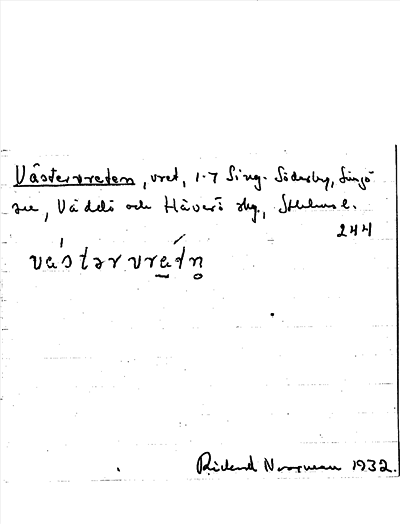 Västervreten, vret, 1-7 Sing- Söderby, Singö
sn, Väddö och Häverö skg, Sthlms l.
244
västərvrẹtn̥
Rickard Norrman 1932.